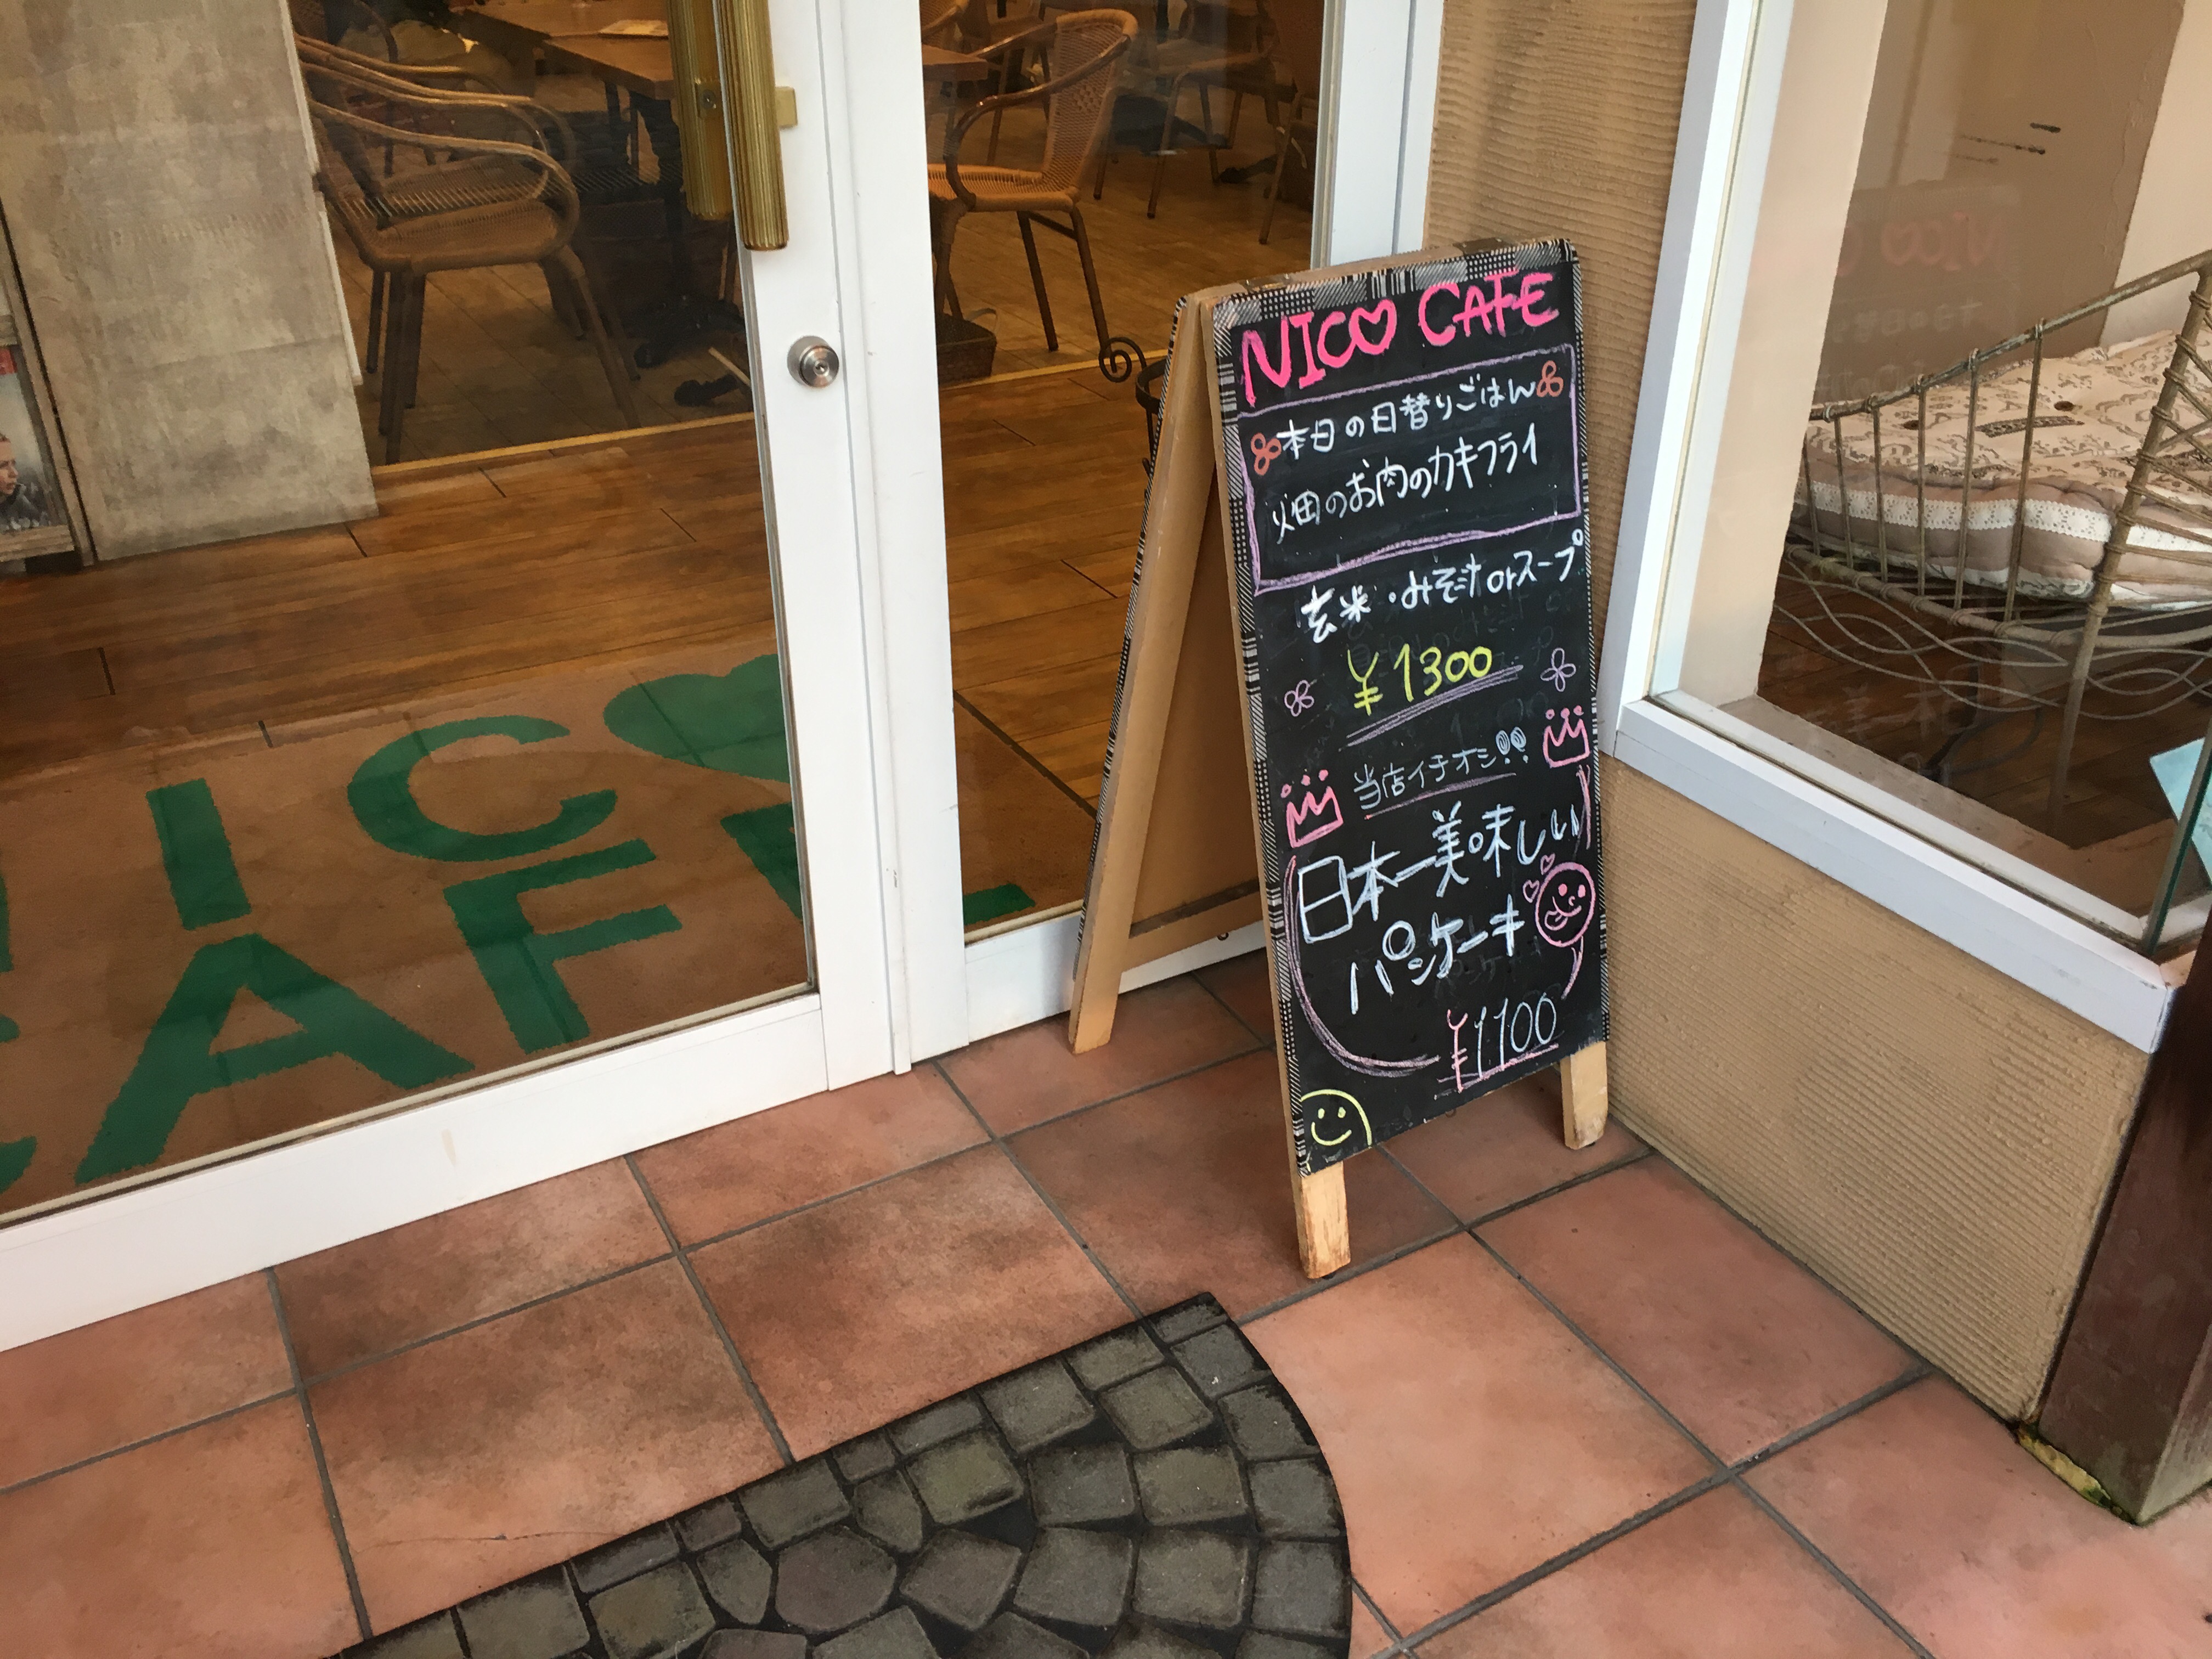 NICO CAFE
本日の日替りごはん
畑のお肉のカキフライ
玄米・みそ汁orスープ
¥1300
当店イチオシ!!
日本一美味しい
パンケーキ
¥1100
IC
CAFE